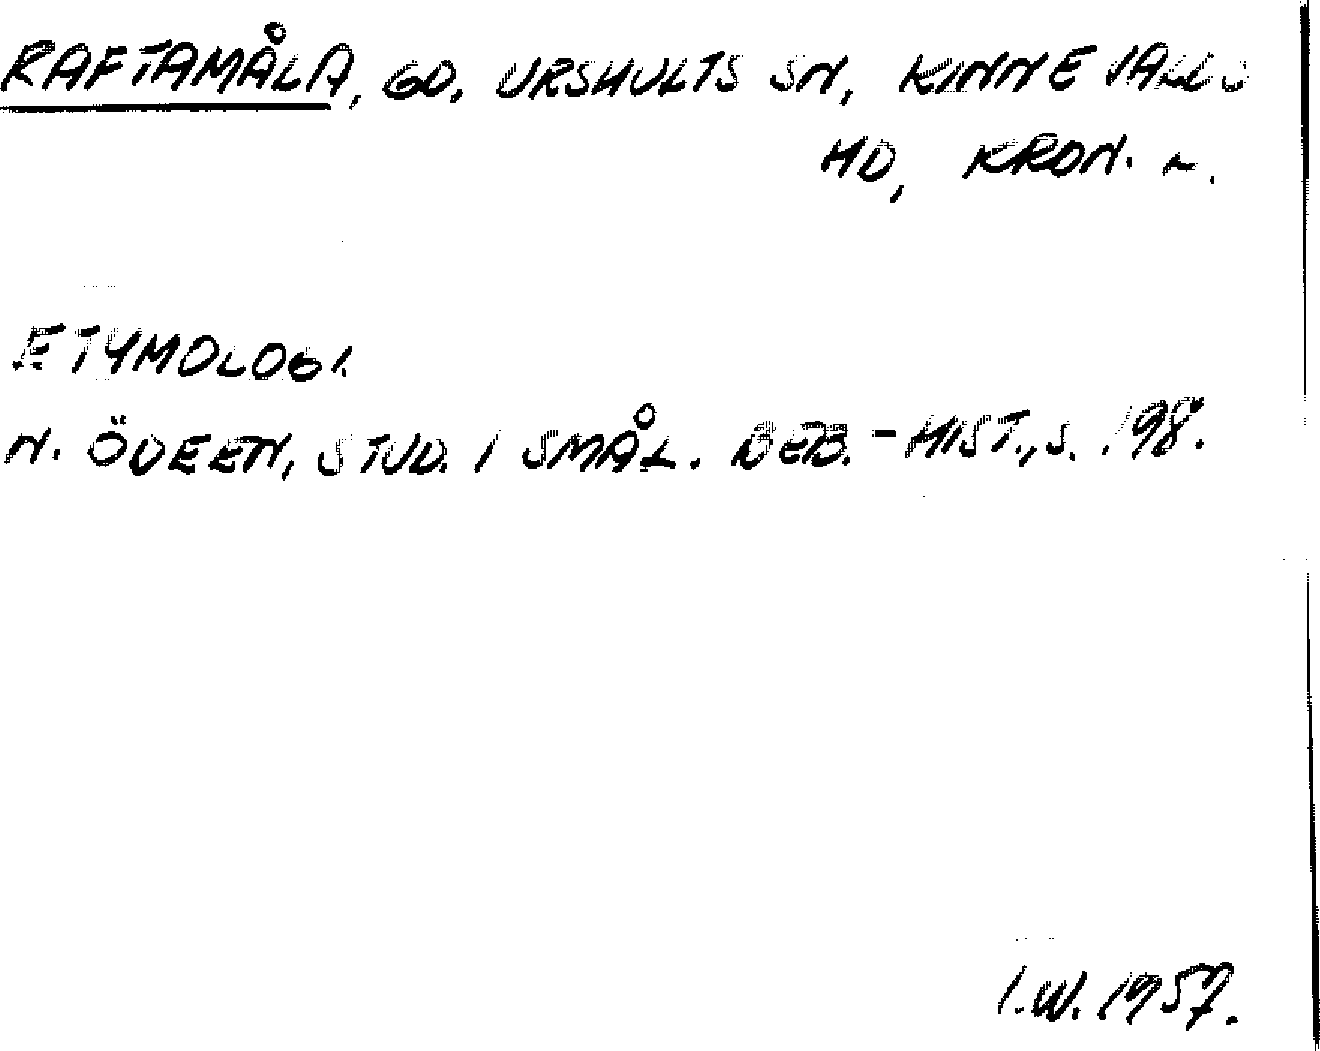 RAFTAMÅLA, GD, URSHULTS SN, KINNEVALDS
HD, KRON. L.
ETYMOLOGI.
N. ÖDEEN, STUD. I SMÅL. BEB.-HIST., S. 198.
I.W. 1957.